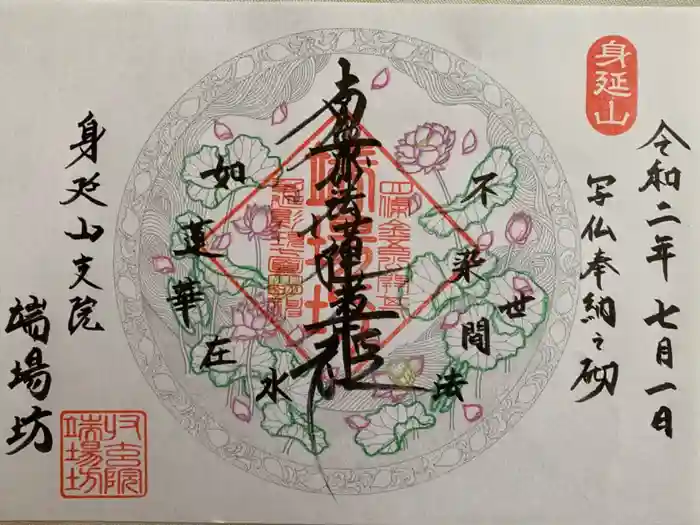 身延山
令和二年 七月一日
写仏奉納之砌
不染世間法
南無妙法蓮華経
如蓮華在水
身延山支院
端場坊
端場坊